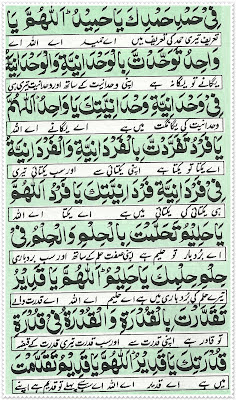 فِىْ حَمْدِ حَمْدِكَ يَا حَمِيْدُ اَللّٰهُمَّ يَا
تعریف تیری حمد کی تعریف میں ہے اے حمید اے اللہ اے
وَاحِدُ تَوَحَّدْتَ بِالْوَحْدَانِيَّةِ وَالْوَحْدَانِيَّةُ
یگانے تو یگانہ ہے اپنی وحدانیت کے ساتھ اور وحدانیت تیری ہی
فِىْ وَحْدَانِيَّةِ وَحْدَانِيَّتِكَ يَا وَاحِدُ اَللّٰهُمَّ
وحدانیت کی یگانگت میں ہے اے یگانے اے اللہ
يَا فَرْدُ تَفَرَّدْتَ بِالْفَرْدَانِيَّةِ وَالْفَرْدَانِيَّةُ
اے یکتا تو یکتا ہے اپنی یکتائی سے اور سب یکتائی تیری
فِىْ فَرْدَانِيَّةِ فَرْدَانِيَّتِكَ يَا فَرْدُ اَللّٰهُمَّ
ہی یکتائی کی یکتائی میں ہے اے یکتا اے اللہ
يَا حَلِيْمُ تَحَلَّمْتَ بِالْحِلْمِ وَالْحِلْمُ فِىْ
اے بردبار تو حلیم ہے اپنی صفت حلم کے ساتھ اور سب بردباری
حِلْمِ حِلْمِكَ يَا حَلِيْمُ اَللّٰهُمَّ يَا قَدِيْرُ
تیرے حلم کی بردباری میں ہے اے حلیم اے اللہ اے قدرت والے
تَقَدَّرْتَ بِالْقُدْرَةِ وَالْقُدْرَةُ فِىْ قُدْرَةِ
تو قادر ہے اپنی قدرت سے اور سب قدرت تیری قدرت کے قبضہ
قُدْرَتِكَ يَا قَدِيْرُ اَللّٰهُمَّ يَا قَدِيْمُ تَقَدَّمْتَ
میں ہے اے قدیر اے اللہ اے سب سے پہلے تو قدیم ہے اپنے